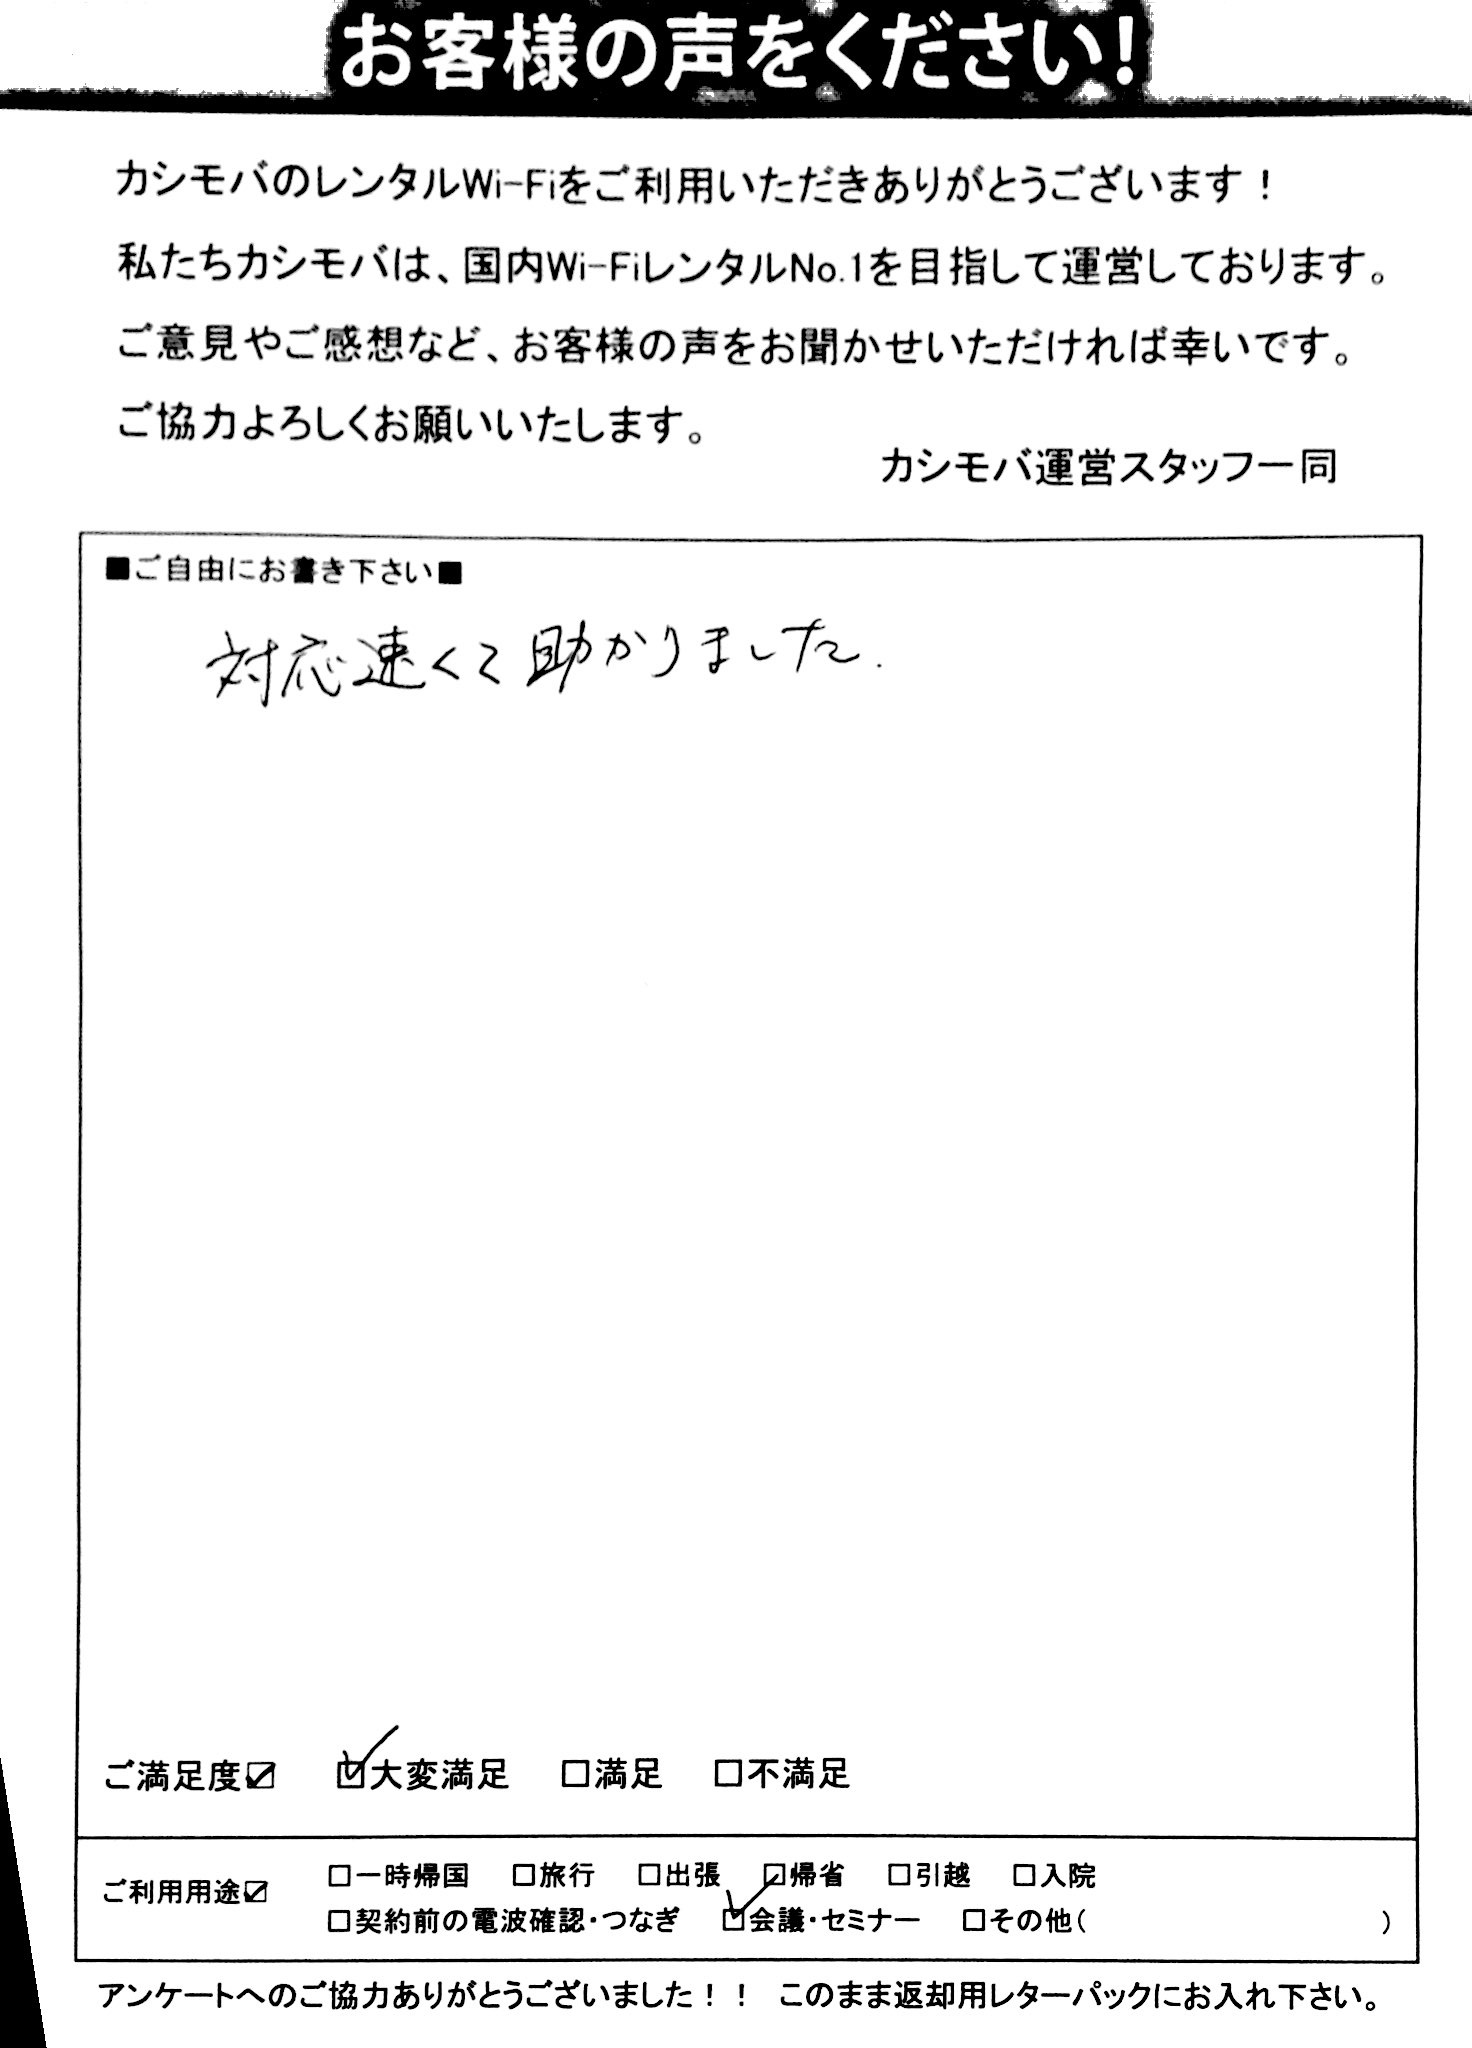 お客様の声をください!
カシモバのレンタルWi-Fiをご利用いただきありがとうございます!
私たちカシモバは、国内Wi-FiレンタルNo.1を目指して運営しております。
ご意見やご感想など、お客様の声をお聞かせいただければ幸いです。
ご協力よろしくお願いいたします。
カシモバ運営スタッフ一同
■ご自由にお書き下さい■
対応速くて助かりました.
ご満足度☑ ☑大変満足 □満足 □不満足
ご利用用途☑ □一時帰国 □旅行 □出張 □帰省 □引越 □入院
□契約前の電波確認・つなぎ ☑会議・セミナー □その他( )
アンケートへのご協力ありがとうございました!! このまま返却用レターパックにお入れ下さい。